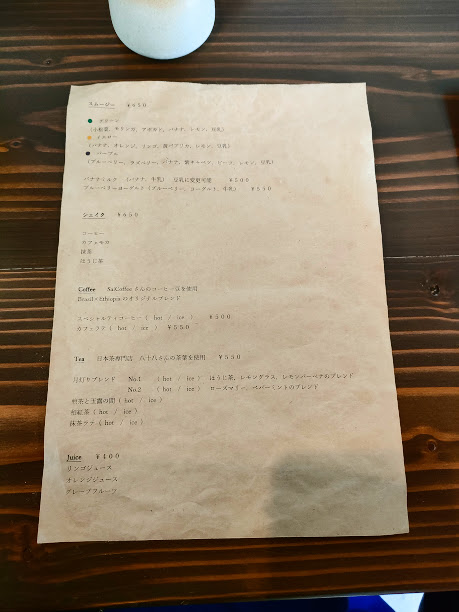 スムージー ¥650
グリーン
(小松菜、モリンガ、アボカド、バナナ、レモン、豆乳)
イエロー
(バナナ、オレンジ、リンゴ、パプリカ、レモン、豆乳)
パープル
(ブルーベリー、ラズベリー、バナナ、紫キャベツ、ビーツ、レモン、豆乳)
バナナミルク (バナナ、牛乳) 豆乳に変更可能 ¥500
ブルーベリーヨーグルト (ブルーベリー、ヨーグルト、牛乳) ¥550
シェイク ¥650
コーヒー
カフェモカ
抹茶
ほうじ茶
Coffee SaiCoffeeさんのコーヒー豆を使用
Brazil×Ethiopiaのオリジナルブレンド
スペシャルティコーヒー ( hot / ice ) ¥500
カフェラテ ( hot / ice ) ¥550
Tea 日本茶専門店 八十八さんの茶葉を使用 ¥550
月灯りブレンド No.1 ( hot / ice ) ほうじ茶、レモングラス、レモンバーベナのブレンド
No.2 ( hot / ice ) ローズマリー、ペパーミントのブレンド
煎茶と玉露の間 ( hot / ice )
和紅茶 ( hot / ice )
抹茶ラテ ( hot / ice )
Juice ¥400
リンゴジュース
オレンジジュース
グレープフルーツ